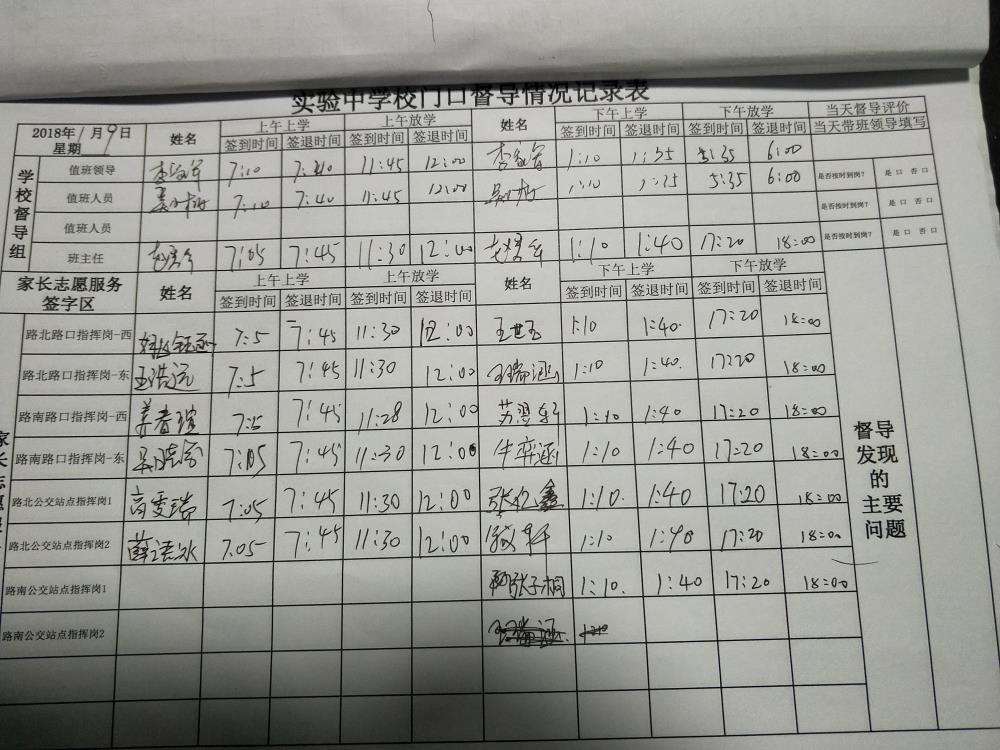 实验中学校门口督导情况记录表
2018年 1月9日
星期
姓名 上午上学 上午放学 姓名 下午上学 下午放学 当天督导评价
签到时间 签退时间 签到时间 签退时间 签到时间 签退时间 签到时间 签退时间 当天带班领导填写
学校督导组
值班领导 7:10 11:45 12:00 1:10 1:35 5:35 6:00
值班人员 7:10 7:40 11:45 12:00 1:10 5:35 6:00 是否按时到岗? 是口 否口
值班人员 是否按时到岗? 是口 否口
班主任 7:05 7:45 11:30 12:00 1:10 1:40 17:20 18:00 是否按时到岗? 是口 否口
家长志愿服务
签字区
姓名 上午上学 上午放学 姓名 下午上学 下午放学
签到时间 签退时间 签到时间 签退时间 签到时间 签退时间 签到时间 签退时间
路北路口指挥岗-西 7:5 7:45 11:30 12:00 王世玉 1:10 1:40. 17:20 18:00
路北路口指挥岗-东 王浩远 7:5 7:45 11:30 12:00 瑞涵 1:10 1:40. 17:20 18:00
路南路口指挥岗-西 姜春瑞 7:5 7:45 11:28 12:00 苏翌轩 1:10 1:40 17:20 18:00
路南路口指挥岗-东 7:05 7:45 11:30 12:00 牛弈涵 1:10 1:40 17:20 18:00
路北公交站点指挥岗1 高雯瑞 7:05 7:45 11:30 12:00 张 鑫 1:10. 1:40 17:20 18:00
路北公交站点指挥岗2 薛语冰 7:05 7:45 11:30 12:00 1:10 1:40 17:20 18:00
路南公交站点指挥岗1 张子桐 1:10. 1:40 17:20 18:00
路南公交站点指挥岗2
督导
发现
的
主要
问题